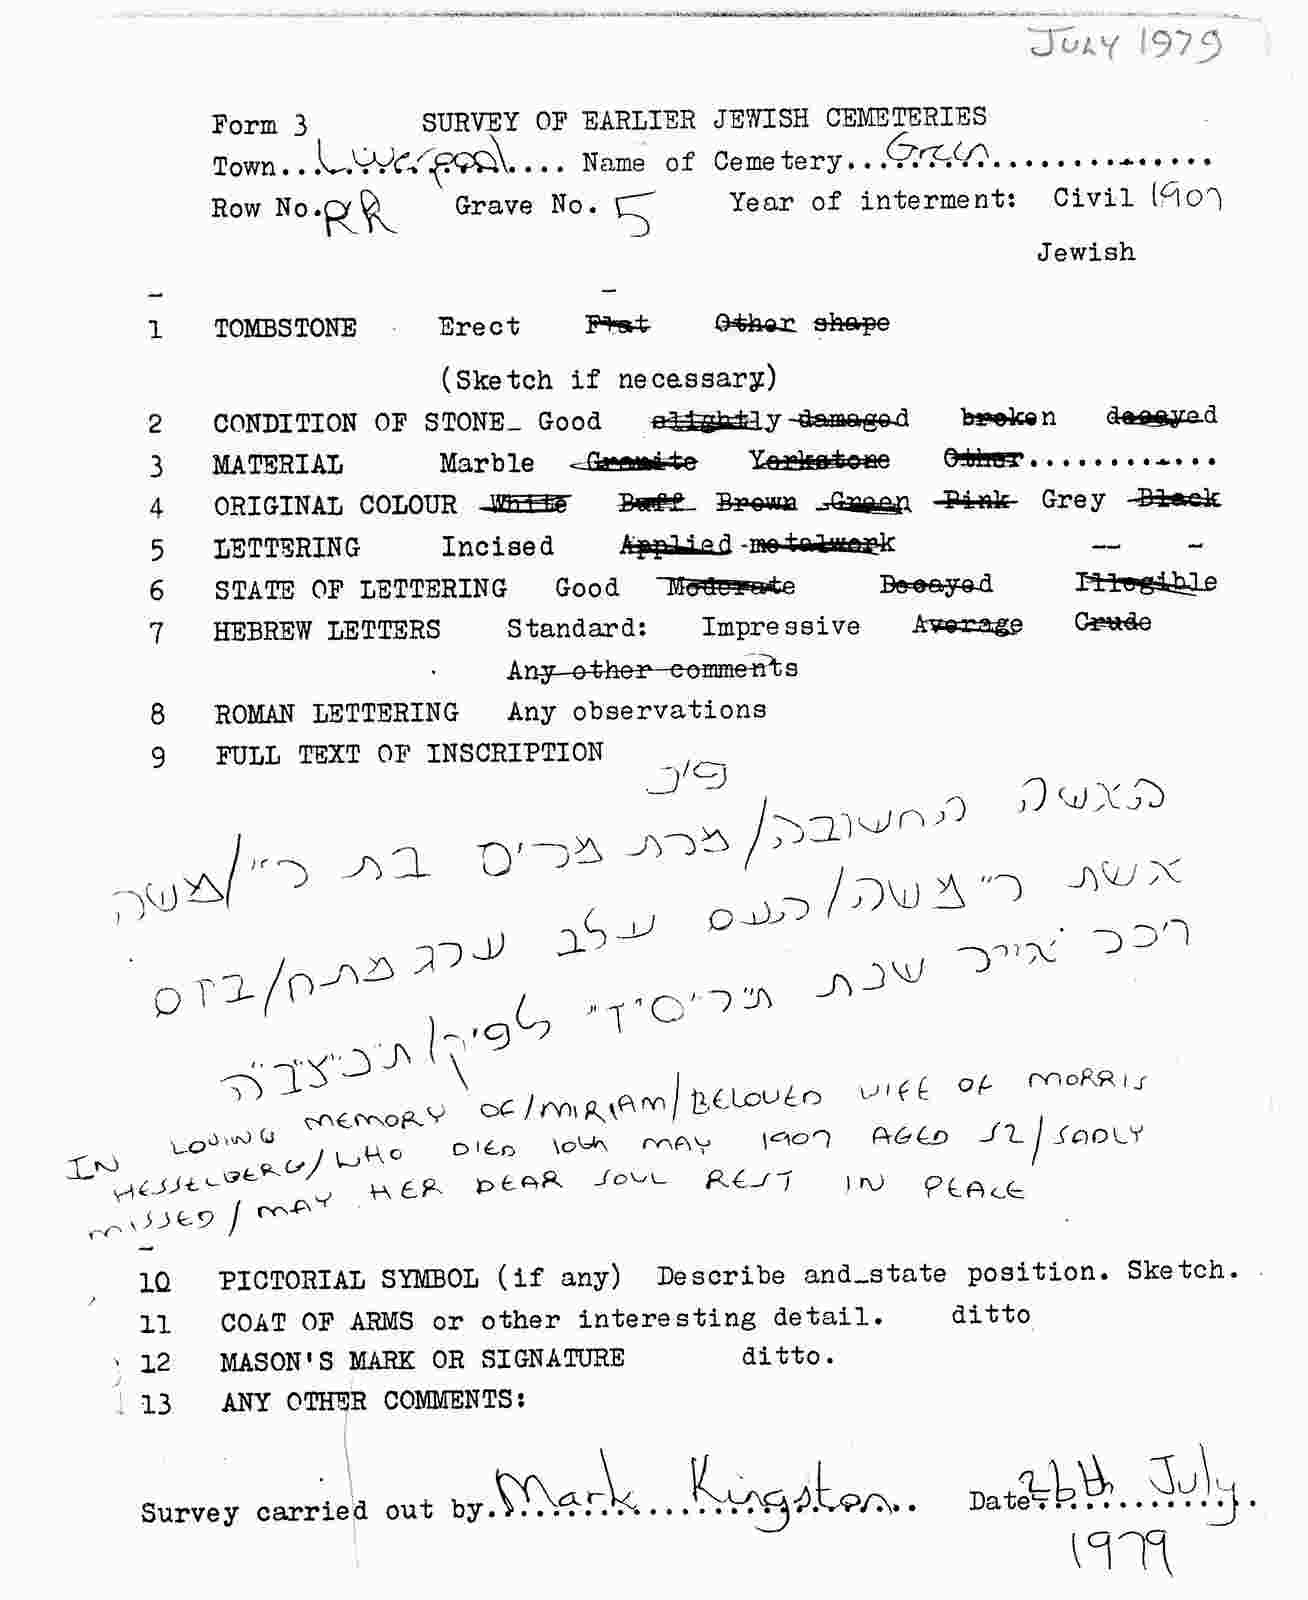 JULY 1979
Form 3 SURVEY OF EARLIER JEWISH CEMETERIES
Town...Liverpool.... Name of Cemetery...Green..............
Row No. RR Grave No. 5 Year of interment: Civil 1907
Jewish
1 TOMBSTONE Erect Flat Other shape
(Sketch if necessary)
2 CONDITION OF STONE_ Good slightly damaged broken decayed
3 MATERIAL Marble Granite Yorkstone Other............
4 ORIGINAL COLOUR White Buff Brown Green Pink Grey Black
5 LETTERING Incised Applied metalwork
6 STATE OF LETTERING Good Moderate Decayed Illegible
7 HEBREW LETTERS Standard: Impressive Average Crude
Any other comments
8 ROMAN LETTERING Any observations
9 FULL TEXT OF INSCRIPTION
האשה החשובה/מרת מרים בת ר"/משה
אשת ר"משה/העס עלב ערג מתח/ביום
אייר שנת ת'ר'ס'ז" לפ'ק/ת"נ"צ"ב"ה
IN LOVING MEMORY OF/MIRIAM/BELOVED WIFE OF MORRIS
HESSELBERG/WHO DIED 10th MAY 1907 AGED 52/SADLY
MISSED/MAY HER DEAR SOUL REST IN PEACE
10 PICTORIAL SYMBOL (if any) Describe and_state position. Sketch.
11 COAT OF ARMS or other interesting detail. ditto
12 MASON'S MARK OR SIGNATURE ditto.
13 ANY OTHER COMMENTS:
Survey carried out by..Mark Kingston.. Date 26th July
1979